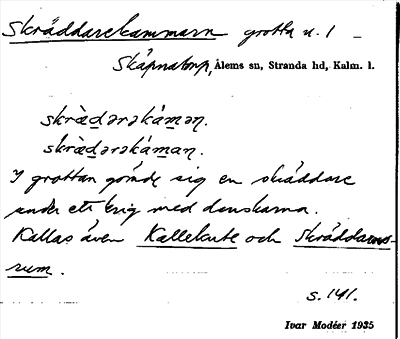 Skräddarekammarn grotta n. 1 –
Skäpnatorp, Ålems sn, Stranda hd, Kalm. l.
skràd̲ərəkám̲ən.
skràd̲ərəkám̲an.
I grottan gömde sig en skräddare
under ett krig med danskarna.
Kallas även Kallekule och Skräddare-
rum.
s. 141.
Ivar Modéer 1935